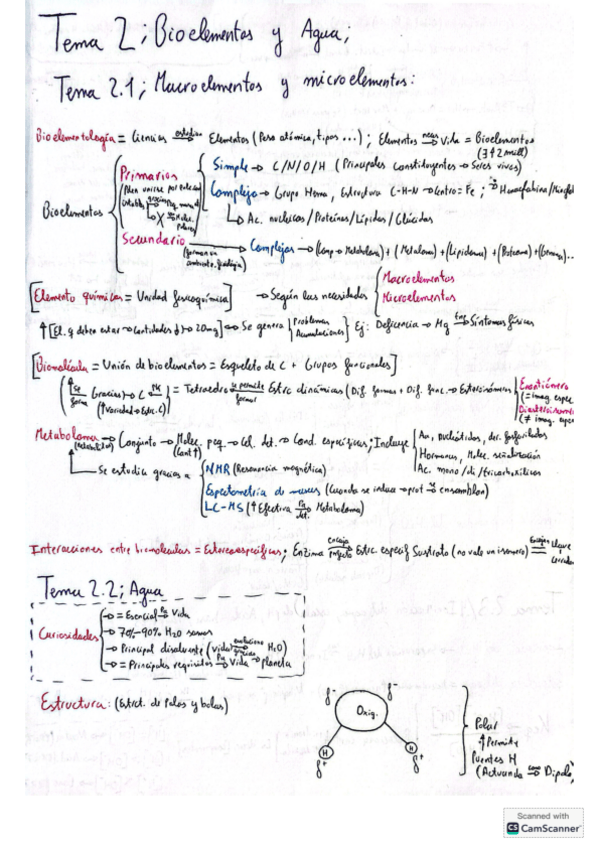 Tema 2; Bioelementos y Agua;
Tema 2.1; Macroelementos y microelementos:
Bioelementología = Ciencias estudia → Elementos (Peso atómico, tipos ...); Elementos neces → Vida = Bioelementos
Bioelementos
Primarios
Simple → C/N/O/H (Principales constituyentes → Seres vivos)
Complejo → Grupo Hemo, Estructura C-H-N → Centro = Fe;
↳ Ac. nucleicos/Proteínas/Lípidos/Glúcidos
Secundario → Complejos → (Comp → Metaboloma) + (Metaloma) + (Lipidoma) + (Proteoma) +
[Elemento químicos = Unidad fisicoquímica] → Según las necesidades
Macroelementos
Microelementos
↑ [El. q deben estar → Cantidades ↓ → 20mg] → Se genera
Problemas
Acumulaciones
Ej: Deficiencia → Mg → Síntomas físicos
[Biomolécula = Unión de bioelementos = Esqueleto de C + Grupos funcionales]
(Se forma Gracias → C
(↑ Variedad → Estr. C)
= Tetraedro se permite formar Estr dinámicas (Dif. formas + Dif. func. → Estereoisómeros
Enantiómero
(= imag. espe
Diastereoisome
(≠ imag. espe
Metaboloma → Conjunto → Molec. peq. → Cel. det. → Cond. específicas; Incluye
(Cant ↑)
Aa, nucleótidos, der. fosforilados
Hormonas, Molec. señalización
Ac. mono/di/tricarboxílicos
Se estudia gracias a
NMR (Resonancia magnética)
Espectometría de masas (Cuando se induce → prot → ensamblan)
LC-MS (↑ Efectiva Pa det. Metaboloma)
Interacciones entre biomoléculas = Estereoespecíficas; Enzima encaja perfecto Estr. específ Sustrato (no vale un isómero) Encajan llave
Tema 2.2; Agua
Curiosidades
→ = Esencial Pa Vida
→ 70%-90% H2O seres
→ Principal disolvente (vida → H2O)
→ = Principales requisitos Pa Vida → planeta
Estructura: (Estrct. de Palos y bolas)
δ-
δ-
Oxig.
H
H
δ+
δ+
Polar
↑ Permite
Puentes H
(Actuando como Dipolo)
Scanned with
CS CamScanner